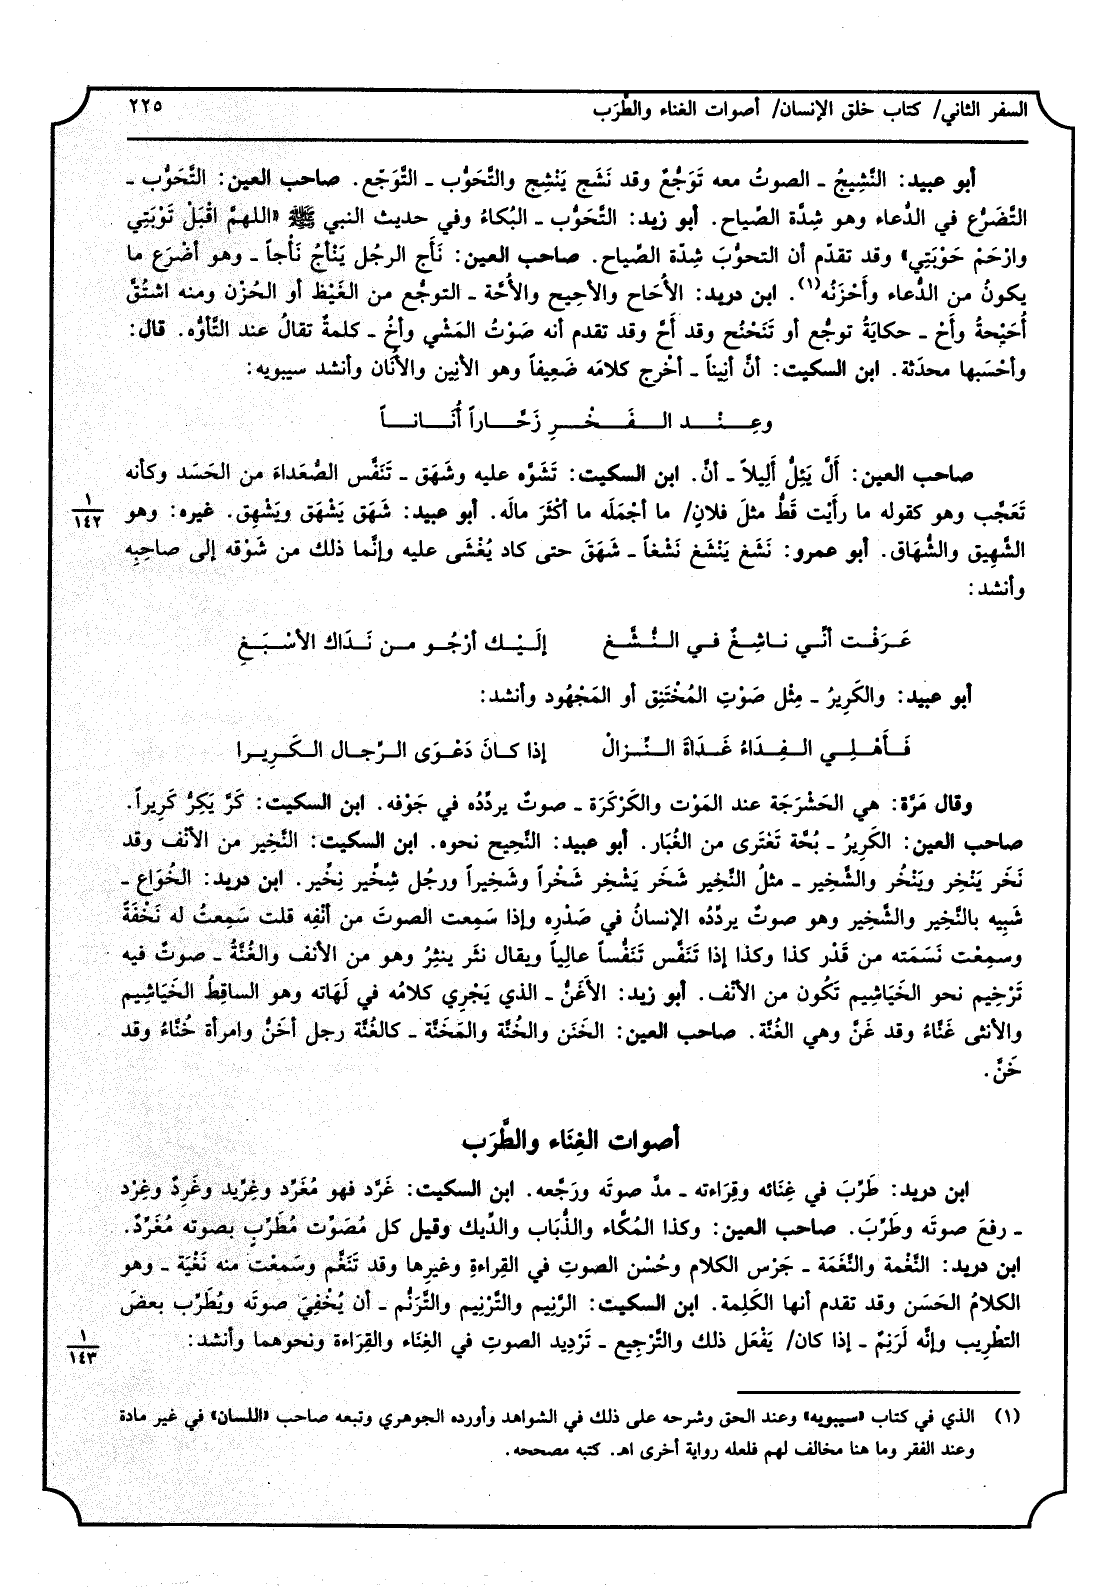 السفر الثاني/ كتاب خلق الإنسان/ أصوات الغناء والطَّرَب ٢٢٥
أبو عبيد: النَّشِيجُ ـ الصوتُ معه تَوَجُّعٌ وقد نَشَج يَنْشِج والتَّحَوُّب ـ التَّوَجّع. صاحب العين: التَّحَوُّب ـ
التَّضَرُّع في الدُّعاء وهو شِدَّة الصِّياح. أبو زيد: التَّحَوُّب ـ البُكاءُ وفي حديث النبي ﷺ «اللهمَّ اقْبَلْ تَوْبَتِي
وارْحَمْ حَوْبَتِي» وقد تقدّم أن التحوُّبَ شِدّة الصِّياح. صاحب العين: نَأَج الرجُل يَنْأجُ نَأْجاً ـ وهو أضْرَع ما
يكونُ من الدُّعاء وأَحْزَنُه(١). ابن دريد: الأُحَاح والأحِيح والأُحَّة ـ التوجُّع من الغَيْظ أو الحُزْن ومنه اشتُقَّ
أُحَيْحةُ وأَحْ ـ حكايَةُ توجُّع أو تَنَحْنُح وقد أحَّ وقد تقدم أنه صَوْتُ المَشْي وأخْ ـ كلمةٌ تقالُ عند التَّأوُّه. قال:
وأحْسَبها محدَثة. ابن السكيت: أنَّ أنِيناً ـ أخْرج كلامَه ضَعِيفاً وهو الأنِين والأُنَان وأنشد سيبويه:
وعِـنْـد الـفَـخْـرِ زَحَّـاراً أُنَـانـاً
صاحب العين: أَلَّ يَئِلُّ أَلِيلاً ـ أنَّ. ابن السكيت: تَشَوَّه عليه وشَهَق ـ تَنَفَّس الصُّعَداءَ من الحَسَد وكأنه
١
١٤٢
تَعَجَّب وهو كقوله ما رأَيْت قَطُّ مثلَ فلانٍ/ ما أجْمَلَه ما أكْثَرَ مالَه. أبو عبيد: شَهَق يَشْهَق ويَشْهِق. غيره: وهو
الشَّهِيق والشُّهَاق. أبو عمرو: نَشَغ يَنْشَغ نَشْغاً ـ شَهَقَ حتى كاد يُغْشَى عليه وإنَّما ذلك من شَوْقه إلى صاحِبِه
وأنشد:
عَـرَفْـت أنّـي ناشِـغٌ فـي الـنُّـشَّـغ إلَيْـك أرْجُـو مـن نَـدَاك الأَسْبَـغِ
أبو عبيد: والكَرِيرُ ـ مِثْل صَوْتِ المُخْتَنِق أو المَجْهُود وأنشد:
فَـأَهْـلِـي الـفِـدَاءُ غَـدَاةَ الـنِّـزالْ إذا كـانَ دَعْوَى الـرِّجـال الـكَـرِيـرا
وقال مَرَّة: هي الحَشْرَجَة عند المَوْت والكَرْكَرَة ـ صوتٌ يردِّدُه في جَوْفه. ابن السكيت: كَرَّ يَكِرُّ كَرِيراً.
صاحب العين: الكَرِيرُ ـ بُحَّة تَعْتَرى من الغُبَار. أبو عبيد: النَّحِيح نحوه. ابن السكيت: النَّخِير من الأنْف وقد
نَخَر يَنْخِر ويَنْخُر والشَّخِير ـ مثلُ النَّخِير شَخَر يَشْخِر شَخْراً وشَخِيراً ورجُل شِخِّير نِخِّير. ابن دريد: الخُوَاع ـ
شَبِيه بالنَّخِير والشَّخِير وهو صوتٌ يردِّدُه الإنسانُ في صَدْرِه وإذا سَمِعت الصوتَ من أنْفِه قلت سَمِعتُ له نَخْفَةً
وسمِعْت نَسَمَته من قَدْر كذا وكذا إذا تَنَفَّس تَنَفُّساً عالِياً ويقال نثَر ينثِرُ وهو من الأنف والغُنَّةُ ـ صوتٌ فيه
تَرْخِيم نحو الخَيَاشيم تَكُون من الأنْف. أبو زيد: الأغَنُّ ـ الذي يَجْرِي كلامُه في لَهَاته وهو الساقِطُ الخَيَاشِيم
والأنثى غَنَّاءُ وقد غَنَّ وهي الغُنَّة. صاحب العين: الخَنَن والخُنَّة والمَخَنَّة ـ كالغُنَّة رجل أخَنُّ وامرأة خُنَّاءُ وقد
خَنَّ.
أصوات الغِنَاء والطَّرَب
ابن دريد: طَرَّبَ في غِنَائه وقِرَاءته ـ مدَّ صوتَه ورَجَّعه. ابن السكيت: غَرَّد فهو مُغَرِّد وغِرِّيد وغَرِدٌ وغِرْد
ـ رفعَ صوتَه وطَرَّبَ. صاحب العين: وكذا المُكَّاء والذُّبَاب والدِّيك وقيل كل مُصَوِّت مُطَرِّبٍ بصوته مُغَرِّدٌ.
ابن دريد: النَّغْمة والنَّغَمَة ـ جَرْس الكلام وحُسْن الصوتِ في القِراءةِ وغيرِها وقد تَنَغَّم وسَمعْت منه نَغْيَة ـ وهو
الكلامُ الحَسَن وقد تقدم أنها الكَلِمة. ابن السكيت: الرَّنِيم والتَّرْنِيم والتَّرَنُّم ـ أن يُخْفِيَ صوتَه ويُطَرِّب بعضَ
١
١٤٣
التطْرِيب وإنَّه لَرَنِمٌ ـ إذا كان/ يَفْعَل ذلك والتَّرْجِيع ـ تَرْدِيد الصوتِ في الغِنَاء والقِرَاءة ونحوهما وأنشد:
(١) الذي في كتاب «سيبويه» وعند الحق وشرحه على ذلك في الشواهد وأورده الجوهري وتبعه صاحب «اللسان» في غير مادة
وعند الفقر وما هنا مخالف لهم فلعله رواية أخرى اهـ. كتبه مصححه.